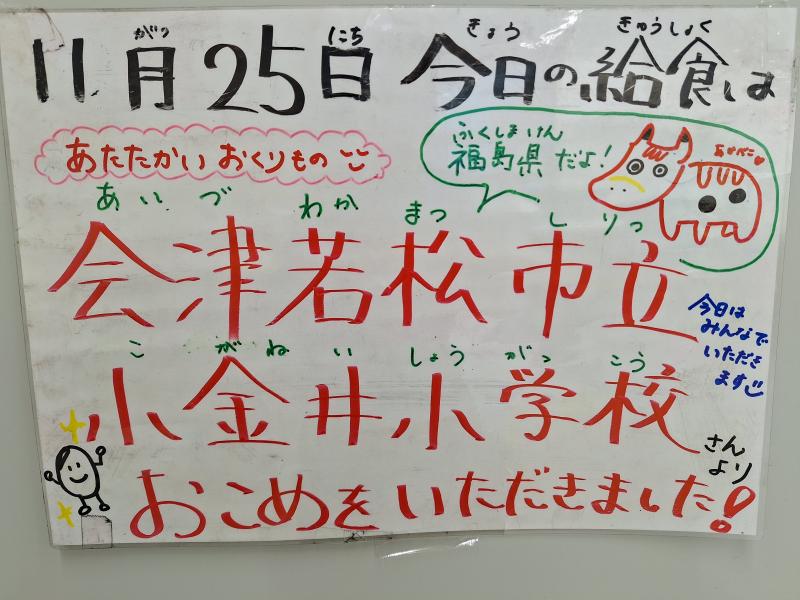 がつ にち きょう きゅうしょく
11月25日 今日の給食は
あたたかい おくりもの
ふくしまけん
福島県だよ!
あかべこ
あいづ わか まつ しりつ
会津若松市立
こ がね い しょう がっ こう
小金井小学校
さんより
今日は
みんなで
いただき
ます
おこめを いただきました!